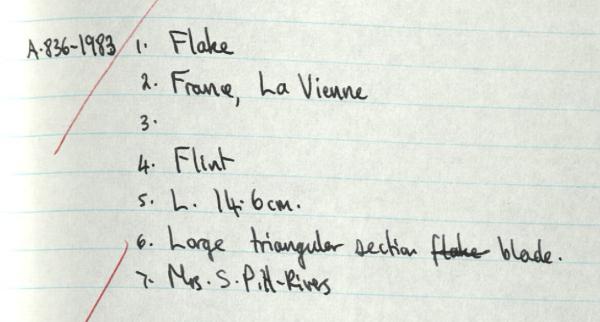 A.836-1983 1. Flake
2. France, La Vienne
3.
4. Flint
5. L. 14.6cm.
6. Large triangular section flake blade.
7. Mrs. S. Pitt-Rivers